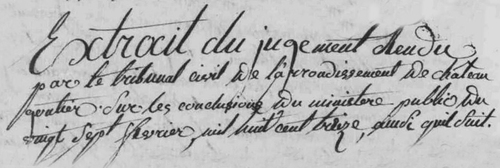 Extrait du jugement Rendu
par le tribunal civil de larrondissement de chateau
gontier. Sur les conclusions du ministere public du
vingt Sept fevrier, mil huit cent treize, ainsi quil suit.